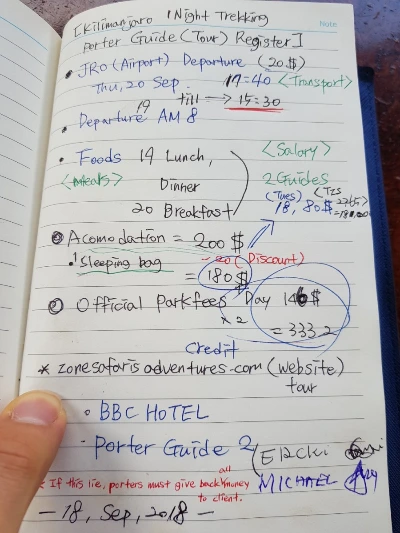 Note
[Kilimanjaro 1 Night Trekking
Porter Guide (Tour) Register]
• JRO (Airport) Departure (20$)
Thu, 20 Sep. 17=40 <Transport>
till → 15=30
19
• Departure AM 8
• Foods 19 Lunch, <Salary>
<Meals> Dinner 2 Guides
20 Breakfast (Tues) 18, 80$
① Acomodation = 200$
• 1 Sleeping bag -20 (Discount)
= 180$
② Official Parkfees Day 146$
× 2 = 333.2
Credit
* zonesafarisadventures.com (website)
tour
• BBC HOTEL
• Porter Guide 2
MICHAEL
* If this lie, porters must give back all money
to client.
- 18, Sep, 2018 -